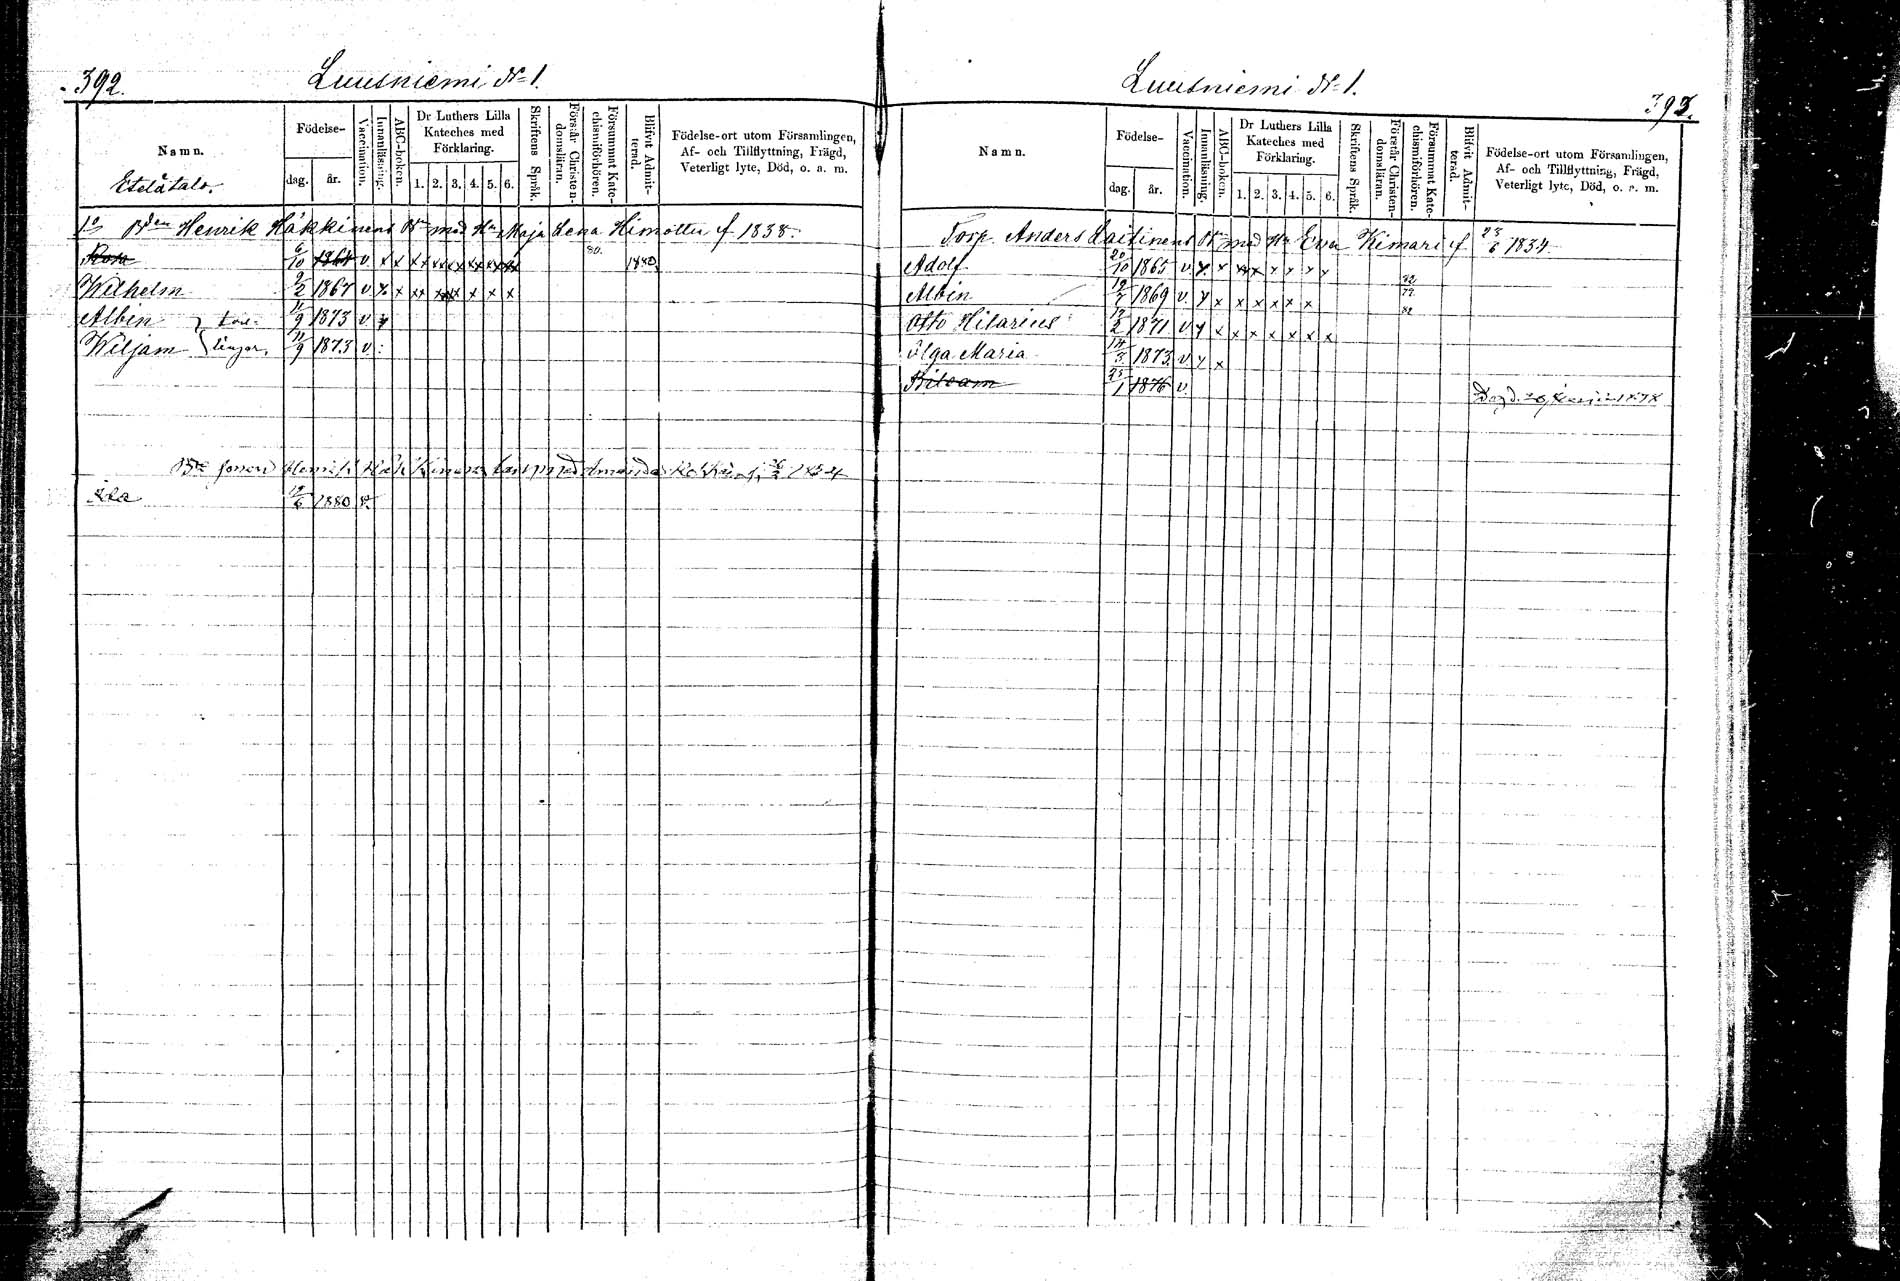 392.
Luusniemi No 1.
Namn.
Födelse-
dag.
år.
Vaccination.
Innanläsning.
ABC-boken.
Dr Luthers Lilla Kateches med Förklaring.
1. 2. 3. 4. 5. 6.
Skriftens Språk.
Förstår Christen-domsläran.
Försummat Kate-chismiförhören.
Blifvit Admit-terad.
Födelse-ort utom Församlingen,
Af- och Tillflyttning, Frägd,
Veterligt lyte, Död, o. a. m.
Etelätalo.
Henrik Häkkinens Bn med Hu Maja Lena Himottu f 1838.
80.
Rosa 6/10 1864 v x x x x x x x x x 1880.
Wilhelm 9/2 1867 v x x xx x x x x x
Albin 11/9 1873 v x
Wiljam 11/9 1873 v.
Henrik Häkkinens barn med Amanda
Ida 1880 v.
Luusniemi No 1.
393.
Namn.
Födelse-
dag.
år.
Vaccination.
Innanläsning.
ABC-boken.
Dr Luthers Lilla Kateches med Förklaring.
1. 2. 3. 4. 5. 6.
Skriftens Språk.
Förstår Christen-domsläran.
Försummat Kate-chismiförhören.
Blifvit Admit-terad.
Födelse-ort utom Församlingen,
Af- och Tillflyttning, Frägd,
Veterligt lyte, Död, o. a. m.
Torp. Anders Laitinens Bn med Hu Eva Kimari f. 23/6 1834
Adolf 20/10 1865 v. x x xx x x x x x
Albin 1869 v. x x x x x x x 82 79.
Otto Hilarius 12/2 1871 v x x x x x x x x 82
Olga Maria 14/3 1873. v x x
Bileam 25/1 1876 v.
1878